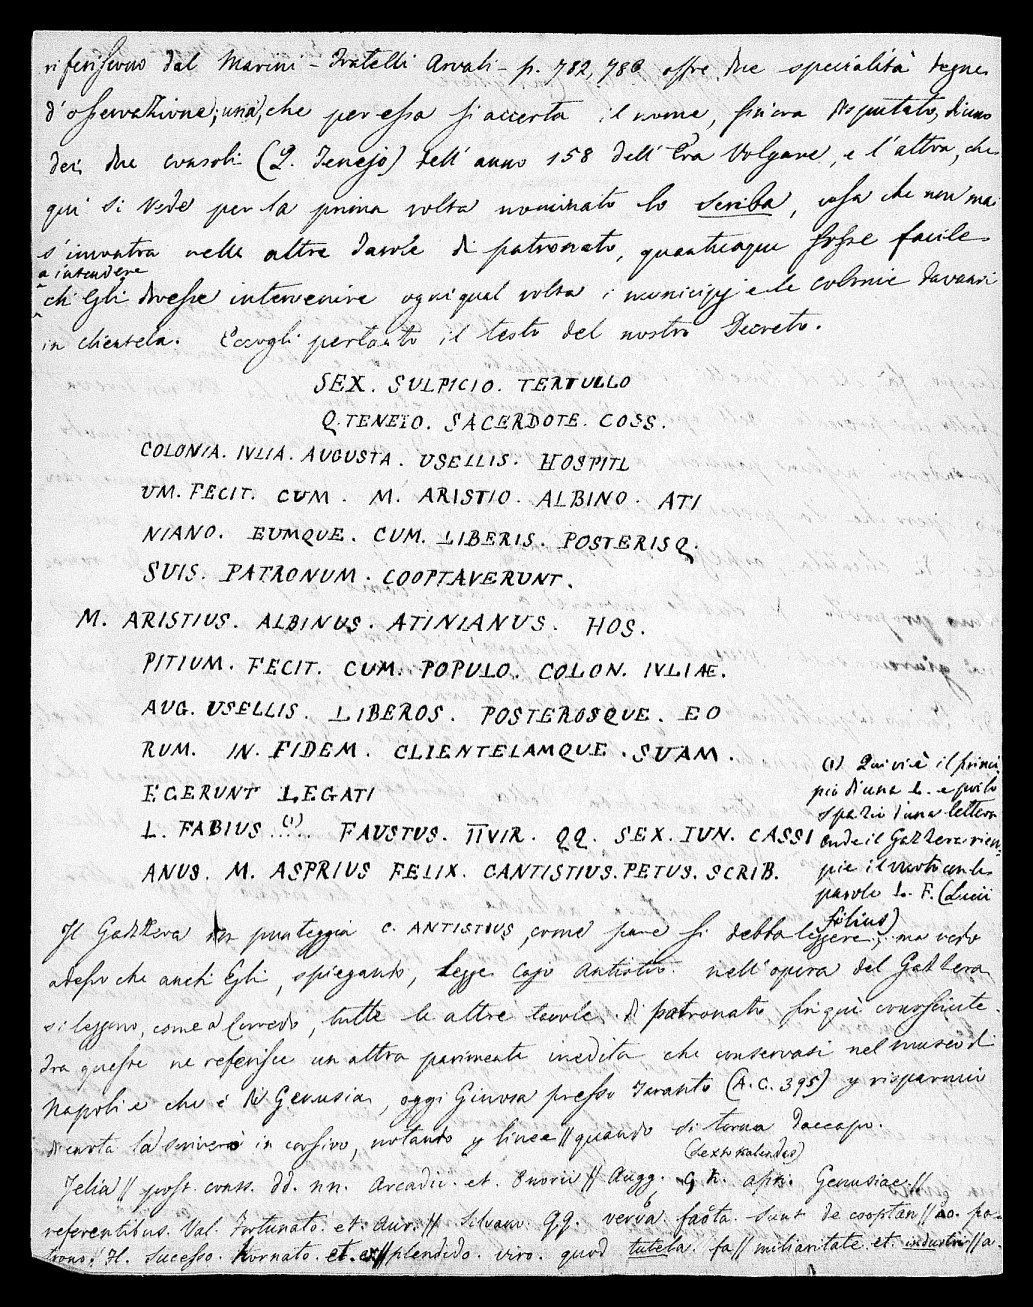 riferiscono dal Marini - Fratelli Arvali - p. 782, 783 offre due specialità degne
d'osservazione; una, che per essa si accerta il nome, sinora disputato, di uno
dei due consoli (Q. Tenejo) dell'anno 158 dell'Era Volgare, e l'altra, che
qui si vede per la prima volta nominato lo scriba, cosa che non mai
s'incontra nelle altre tavole di patronato, quantunque fosse facile
a intendere
ch'Egli dovesse intervenire ogni qual volta i municipj e le colonie davansi
in clientela. Eccogli pertanto il testo del nostro Decreto.
SEX. SULPICIO. TERTULLO
Q. TENEIO. SACERDOTE. COSS.
COLONIA. IVLIA. AUGUSTA. USELLIS. HOSPITI
UM. FECIT. CUM. M. ARISTIO. ALBINO. ATI
NIANO. EUMQUE. CUM. LIBERIS. POSTERISQ.
SUIS. PATRONUM. COOPTAVERUNT.
M. ARISTIUS. ALBINUS. ATINIANUS. HOS.
PITIUM. FECIT. CUM. POPULO. COLON. IVLIÆ.
AUG. USELLIS. LIBEROS. POSTEROSQUE. EO
RUM. IN. FIDEM. CLIENTELAMQUE. SUAM
EGERUNT LEGATI
L. FABIUS (1) FAUSTUS. IIVIR. QQ. SEX. IUN. CASSI
ANUS. M. ASPRIUS FELIX. CANTISTIUS. PETUS. SCRIB.
(1) Quivi è il princi
pio d'una L. e poi lo
spazio d'una lettera
onde il Gazzera riem-
pie il vuoto con le
parole L. F. (Lucii
filius)
Il Gazzera punteggia C. ANTISTIUS, come pure si debba leggere; ma vedo
adesso che anch'Egli, spiegando, legge Cajo Antistio. nell'opera del Gazzera
si leggono, come a Corredo, tutte le altre tavole di patronato fin quì conosciute.
Tra queste ne riferisce un altra parimente inedita che conservasi nel museo di
Napoli e che è di Genusia, oggi Ginosa presso Taranto (A. C. 395) e risparmio
di carta la scriverò in corsivo, notando // quando si torna daccapo.
(sexto kalendas)
// post. conss. dd. nn. Arcadii. et. Onorii // Augg. k. apr. Genusiae //
referentibus. Val. Fortunato. et. Aur. // Silvano. qq. verba facta. sunt de cooptan // do. pa-
trono. Fl. Sucesso. hornato. et. // splendido. viro. quod tutela. fa // miliaritate. et. industri // a.